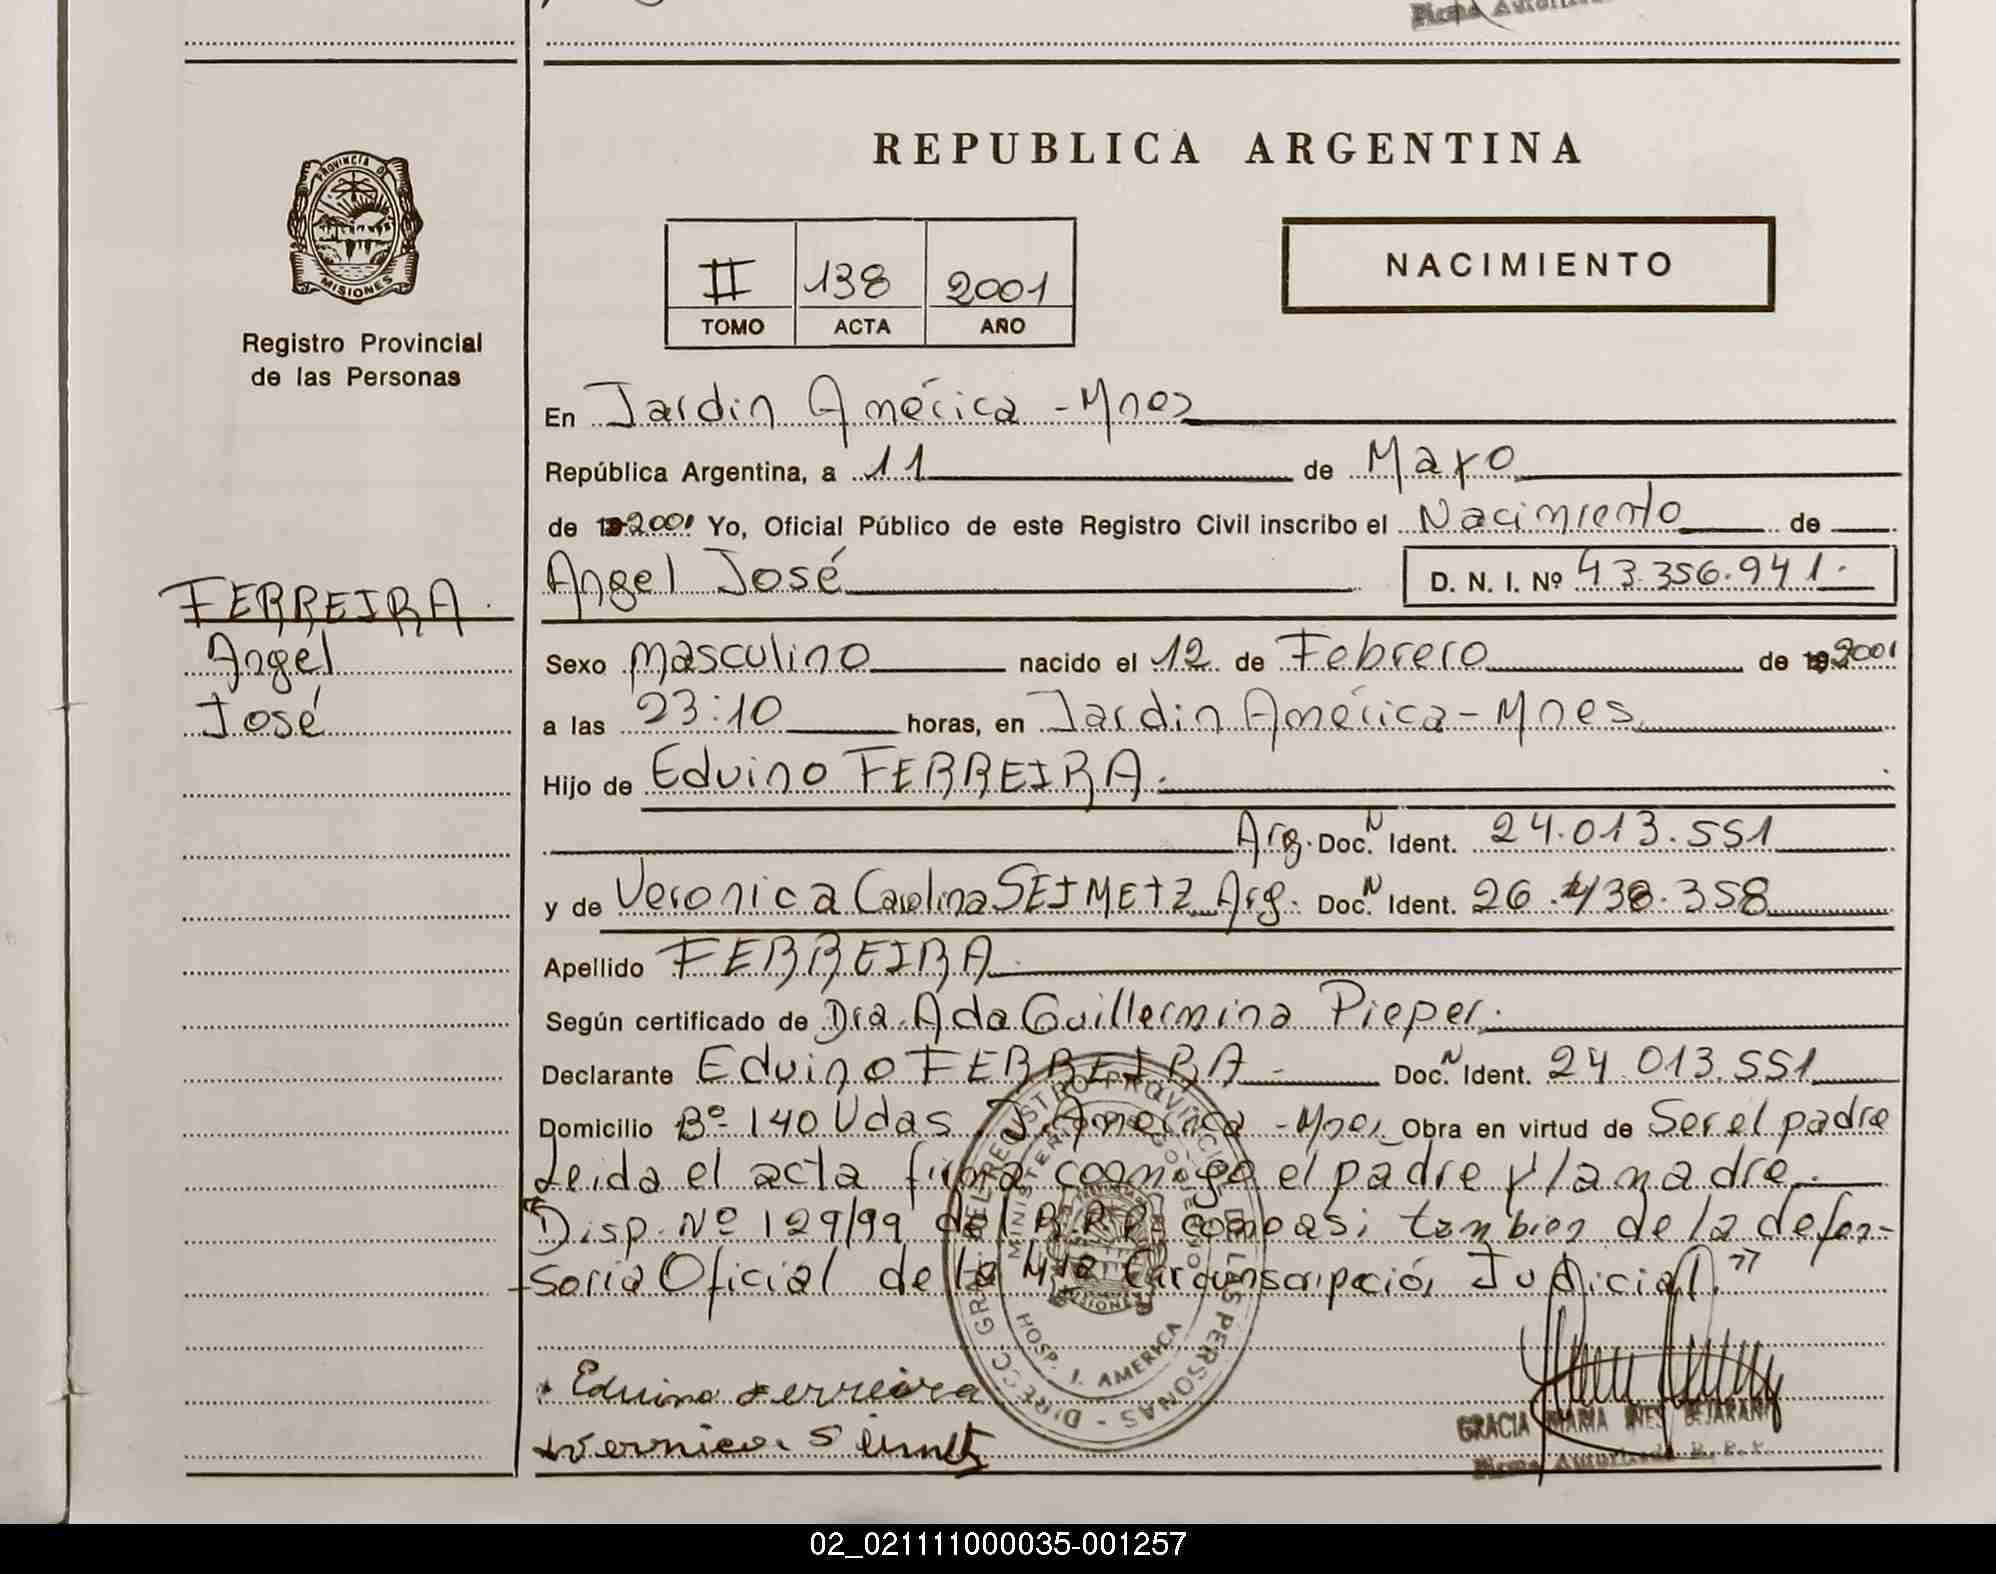 Firma Autoriz
REPUBLICA ARGENTINA
PROVINCIA DE
MISIONES
Registro Provincial
de las Personas
II 138 2001
TOMO ACTA AÑO
NACIMIENTO
En Jardin América - Mnes
República Argentina, a 11 de Mayo
de 192001 Yo, Oficial Público de este Registro Civil inscribo el Nacimiento de
Angel José D. N. I. Nº 43.356.941.
FERREIRA.
Angel
José
Sexo masculino nacido el 12 de Febrero de 192001
a las 23:10 horas, en Jardin América - Mnes
Hijo de Eduino FERREIRA.
Arg. Doc. N Ident. 24.013.551
y de Veronica Carolina SEIMETZ Arg. Doc. N Ident. 26.438.358
Apellido FERREIRA.
Según certificado de Dra. Ada Guillermina Pieper.
Declarante Eduino FERREIRA - Doc. N Ident. 24 013.551
Domicilio Bº 140 Vdas J. América - Mnes Obra en virtud de Ser el padre
Leida el acta firma conmigo el padre y la madre.
"Disp. Nº 129/99 del R.R.P. como asi tambien de la defen-
soria Oficial de la 4ta Circunscripción Judicial."
DIRECC. GRAL. DEL REGISTRO PROVINCIAL DE LAS PERSONAS -
MINISTERIO DE GOBIERNO
MISIONES
HOSP. J. AMERICA
Eduino Ferreira
Vernica
GRACIA MARIA INES BEJARANO
Firma Autorizada R. P. P.
02_021111000035-001257